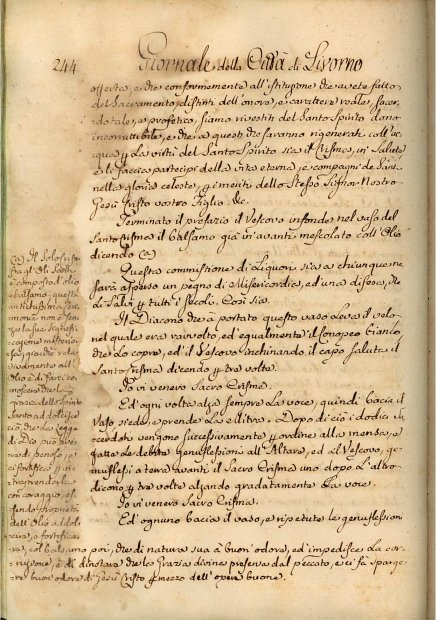 244 Giornale della Città di Livorno
offerta, e che conformemente all'istituzione che avete fatto
del Sacramento, distinti dell'onore, e carattere reale, sacer-
dotale, e profetico, siamo rivestiti del Santo Spirito dono
incorruttibile, e che a questi che saranno rigenerati coll'ac
qua, p la virtù del Santo Spirito sia il Crisma, in Salute
e li faccia partecipi della vita eterna, e compagni de Santi
nella gloria celeste, p i meriti dello Stesso Signor Nostro
Gesù Cristo vostro Figlio &c.
Terminato il prefazio il Vescovo infonde nel vaso del
Santo Crisma il balsamo già in avanti mescolato coll'Olio
dicendo (a)
Questa commistione di Liquori sia a chiunque ne
sarà asperso un pegno di Misericordia, ed una difesa, che
di Salvi p tutti i secoli. Così sia.
Il Diacono che à portato questo vaso leva il velo
nel quale era ravvolto, ed egualmente il Conopeo bianco
che lo copre, ed il Vescovo inchinando il capo saluta il
Santo Crisma dicendo p tre volte.
Io vi venero Sacro Crisma.
Ed ogni volta alza sempre la voce, quindi bacia il
Vaso, siede, e prende la Mitra. Dopo di ciò i dodici Sa
cerdoti vengono successivamente p ordine alla mensa, e
fatte le debite genuflessioni all'Altare, ed al Vescovo, ge-
nuflessi a terra avanti il Sacro Crisma uno dopo l'altro
dicono p tre volte alzando gradatamente la voce.
Io vi venero Sacro Crisma.
Ed ognuno bacia il vaso, e ripetute le genuflessioni
(a) Il Solo
è composto d'olio
e balsamo, questa
antichissima
non è sen-
za la sua
Olio è di farci co
noscere che la
grazia dello Spirito
Santo addolcisce
ciò, che la Legge
di Dio può ave
re di penoso, e
ci fortifica p in
traprenderlo
con coraggio, es
sendo proprietà
dell'Olio addol-
cire, e fortifica
re, col balsamo poi, che di natura sua à buon'odore, ed impedisce la cor-
ruzione, è di dinotare che la Grazia divina preserva dal peccato, e ci fa sparge-
re buon'odore di Gesù Cristo p mezzo dell'opere buone.